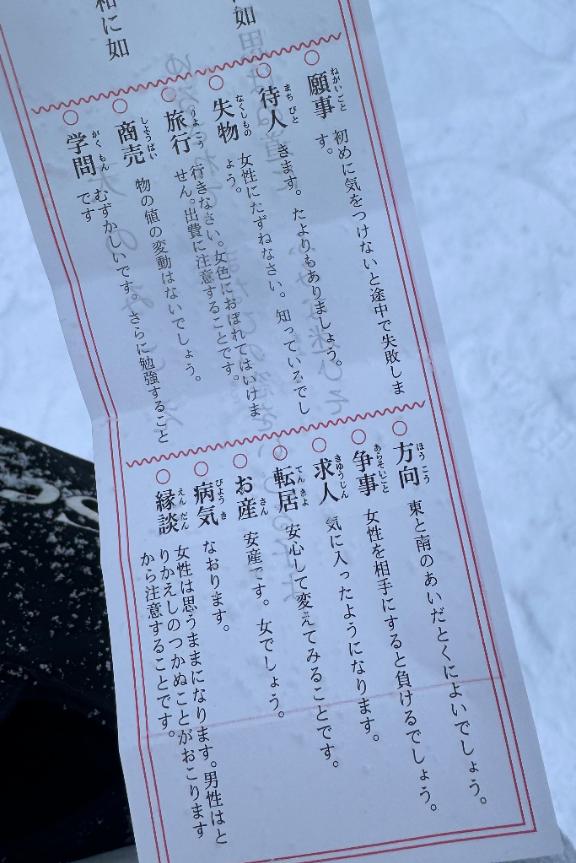 如
和に如
願事 初めに気をつけないと途中で失敗しま
す。
待人 きます。たよりもありましょう。
失物 女性にたずねなさい。知っているでし
ょう。
旅行 行きなさい。女色におぼれてはいけま
せん。出費に注意することです。
商売 物の値の変動はないでしょう。
学問 むずかしいです。さらに勉強すること
です
方向 東と南のあいだとくによいでしょう。
争事 女性を相手にすると負けるでしょう。
求人 気に入ったようになります。
転居 安心して変えてみることです。
お産 安産です。女でしょう。
病気 なおります。
縁談 女性は思うままになります。男性はと
りかえしのつかぬことがおこります
から注意することです。